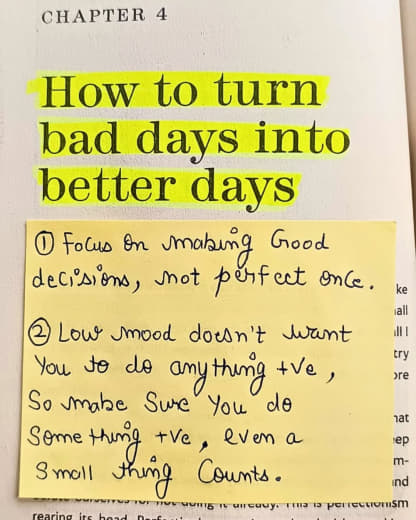 CHAPTER 4
How to turn
bad days into
better days
① Focus on making Good
decisions, not perfect once.
② Low mood doesn't want
You to do anything +ve,
So make Sure You do
Something +ve, even a
Small thing Counts.
ke
all
ll I
try
ore
hat
ep
m-
nd
already. This is perfectionism
rearing its head.